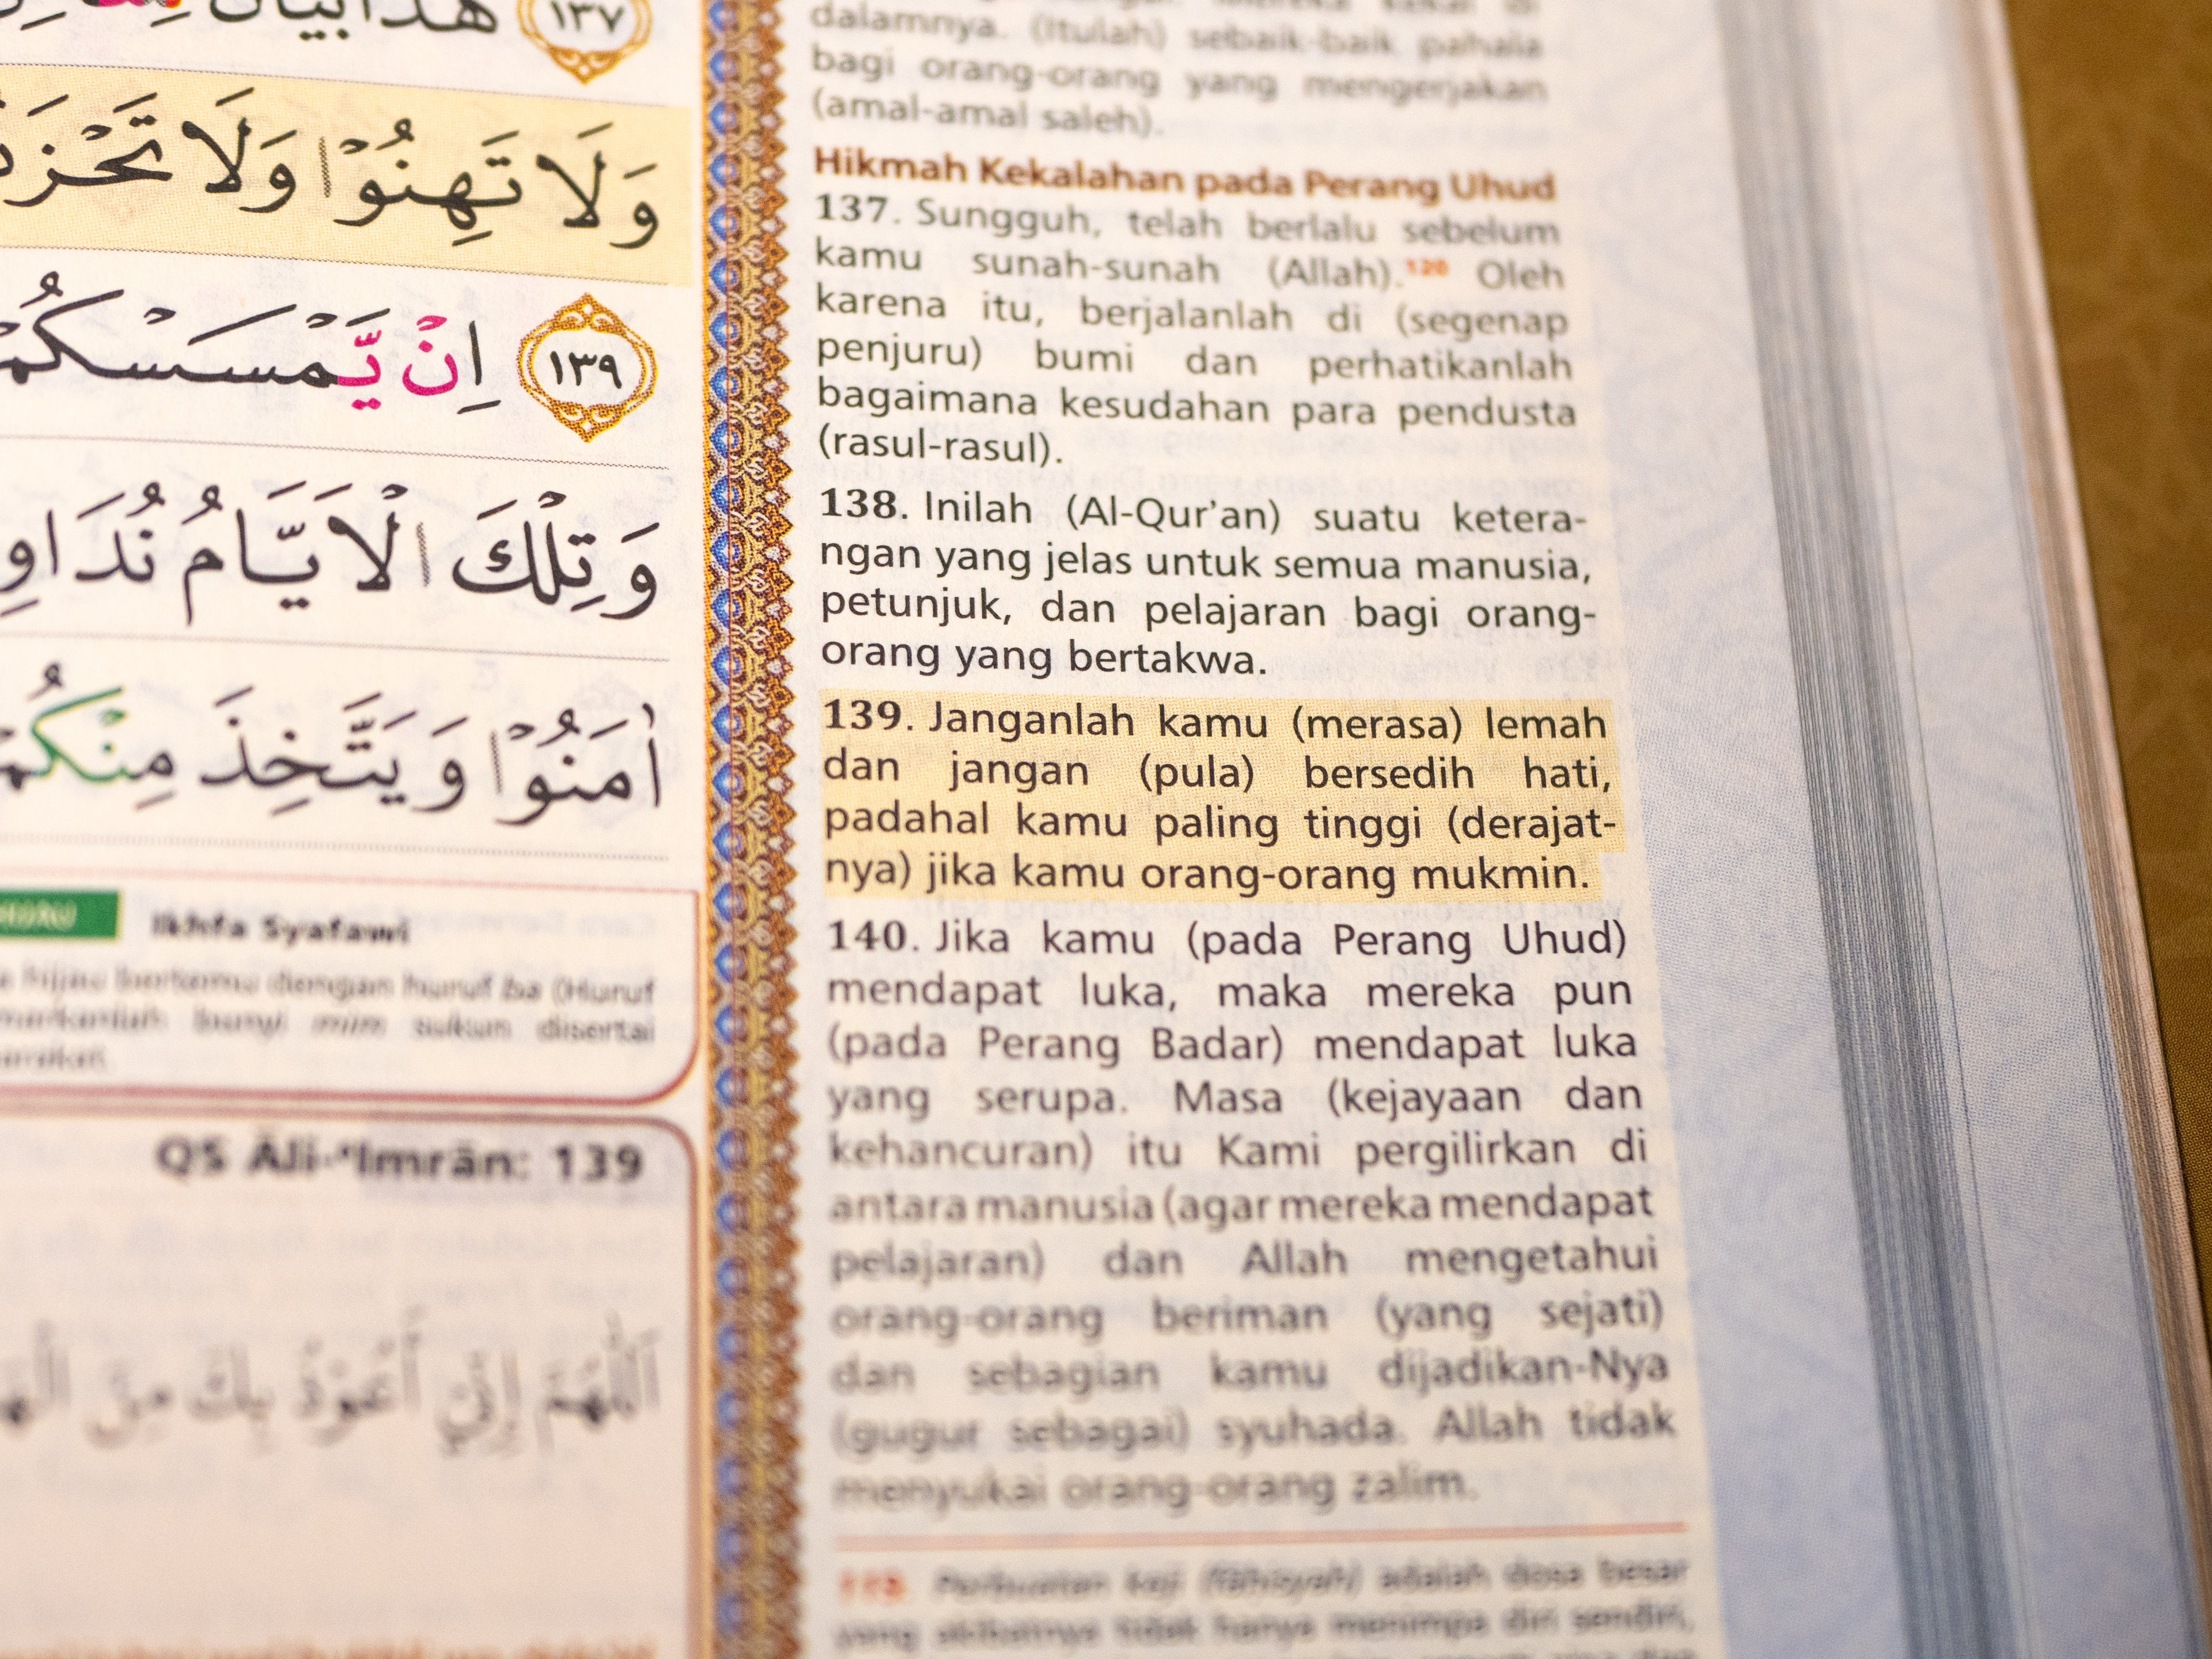 هٰذَا بَيَانٌ
١٣٧
وَلَا تَهِنُوْا وَلَا
١٣٩ اِنْ يَّمْسَسْكُمْ
وَتِلْكَ الْاَيَّامُ
اٰمَنُوْا وَيَتَّخِذَ مِنْكُمْ
HIJAU Ikhfa Syafawi
hijau bertemu dengan huruf ba (Huruf
bunyi mim sukun disertai
QS Āli-‘Imrān: 139
اَللّٰهُمَّ إِنِّيْ أَعُوْذُ بِكَ مِنَ
dalamnya. (Itulah) sebaik-baik pahala
bagi orang-orang yang mengerjakan
(amal-amal saleh).
Hikmah Kekalahan pada Perang Uhud
137. Sungguh, telah berlalu sebelum
kamu sunah-sunah (Allah).120 Oleh
karena itu, berjalanlah di (segenap
penjuru) bumi dan perhatikanlah
bagaimana kesudahan para pendusta
(rasul-rasul).
138. Inilah (Al-Qur’an) suatu ketera-
ngan yang jelas untuk semua manusia,
petunjuk, dan pelajaran bagi orang-
orang yang bertakwa.
139. Janganlah kamu (merasa) lemah
dan jangan (pula) bersedih hati,
padahal kamu paling tinggi (derajat-
nya) jika kamu orang-orang mukmin.
140. Jika kamu (pada Perang Uhud)
mendapat luka, maka mereka pun
(pada Perang Badar) mendapat luka
yang serupa. Masa (kejayaan dan
kehancuran) itu Kami pergilirkan di
antara manusia (agar mereka mendapat
pelajaran) dan Allah mengetahui
orang-orang beriman (yang sejati)
dan sebagian kamu dijadikan-Nya
(gugur sebagai) syuhada. Allah tidak
menyukai orang-orang zalim.
Perbuatan keji (fāḥisyah) adalah dosa besar
yang akibatnya tidak hanya menimpa diri sendiri,